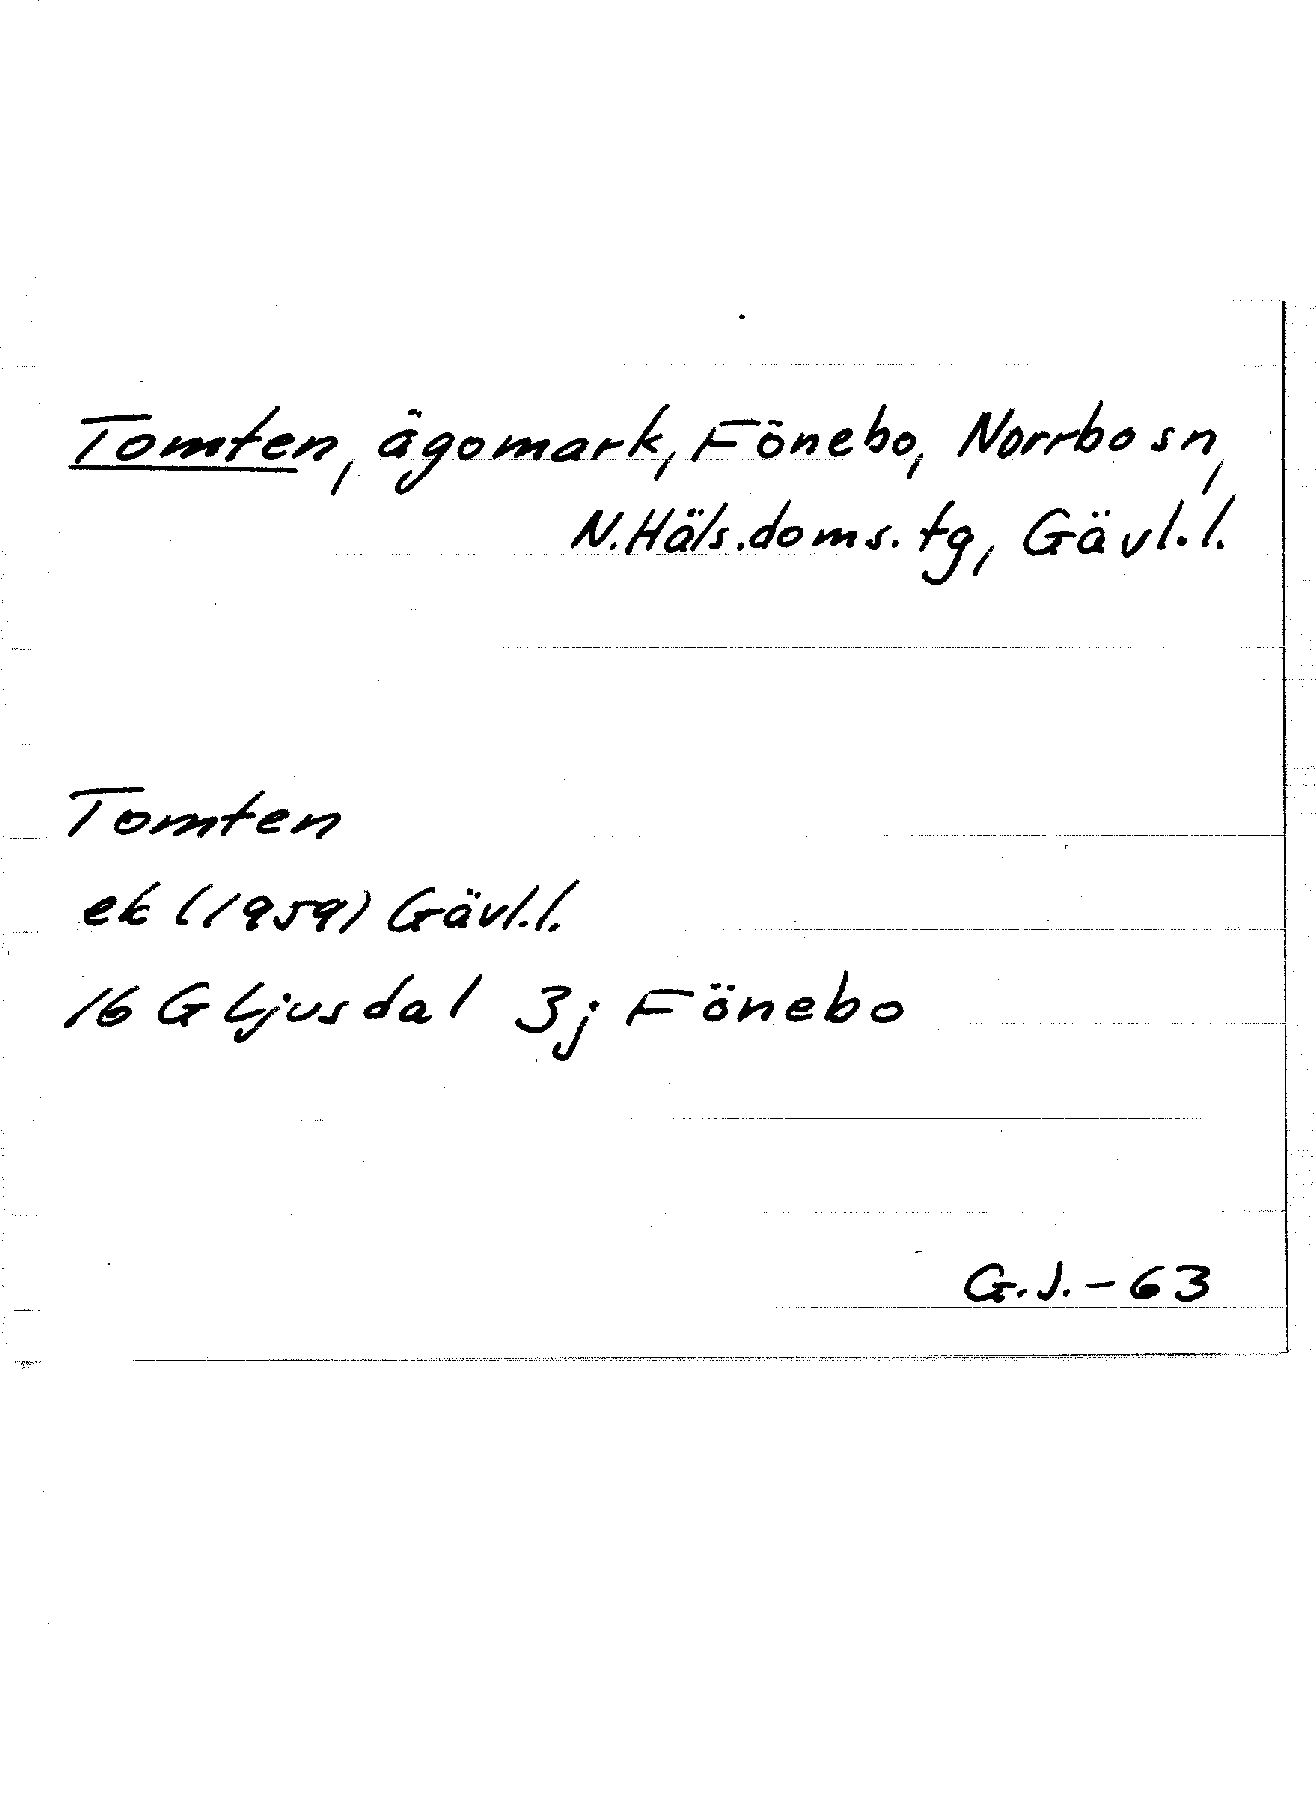 Tomten, ägomark, Fönebo, Norrbo sn,
N. Häls. doms. tg, Gävl. l.
Tomten
ek (1959) Gävl. l.
16 G Ljusdal 3j Fönebo
G.J. - 63